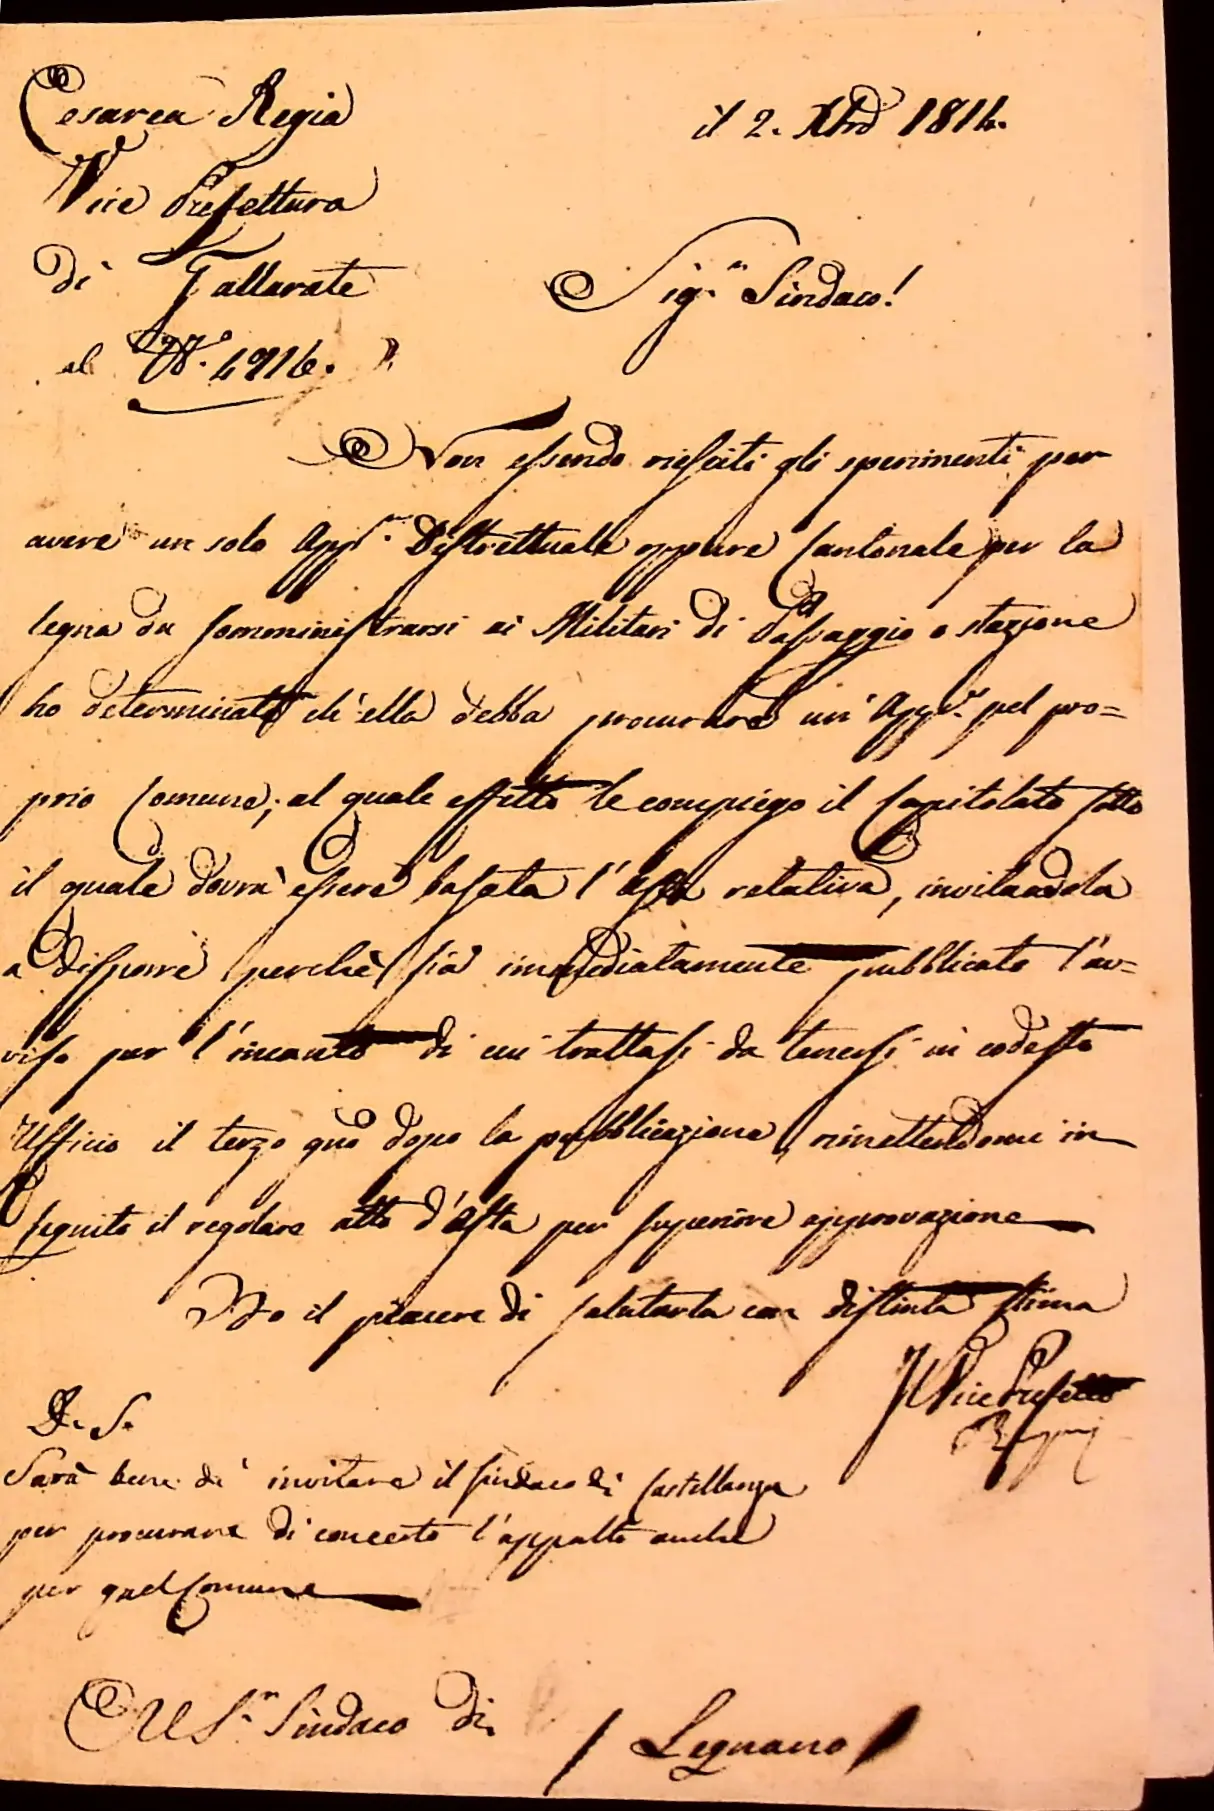 Cesarea Regia
il 2. Xbre 1814.
Vice Prefettura
di Gallarate
Sigr. Sindaco!
al N.º 4916.
Non essendo riesciti gli sperimenti per
avere un solo Appr. Distrettuale oppure Cantonale per la
legna da somministrarsi ai Militari di Passaggio o stazione
ho determinato ch'ella debba procurare un' Appr. pel pro=
prio Comune; al quale effetto le compiego il Capitolato sotto
il quale dovrà essere basata l'Asta relativa, invitandola
a disporre perchè sia immediatamente pubblicato l'av=
viso per l'incanto di cui trattasi da tenersi in codesto
Ufficio il terzo gno dopo la pubblicazione, rimettendomi in
seguito il regolare atto d'Asta per superiore approvazione
Ho il piacere di salutarla con distinta stima
Il Vice Prefetto
P. S.
Sarà bene di invitare il Sindaco di Castellanza
per procurare di concerto l'appalto anche
per quel Comune
Al Sr. Sindaco di
Legnano